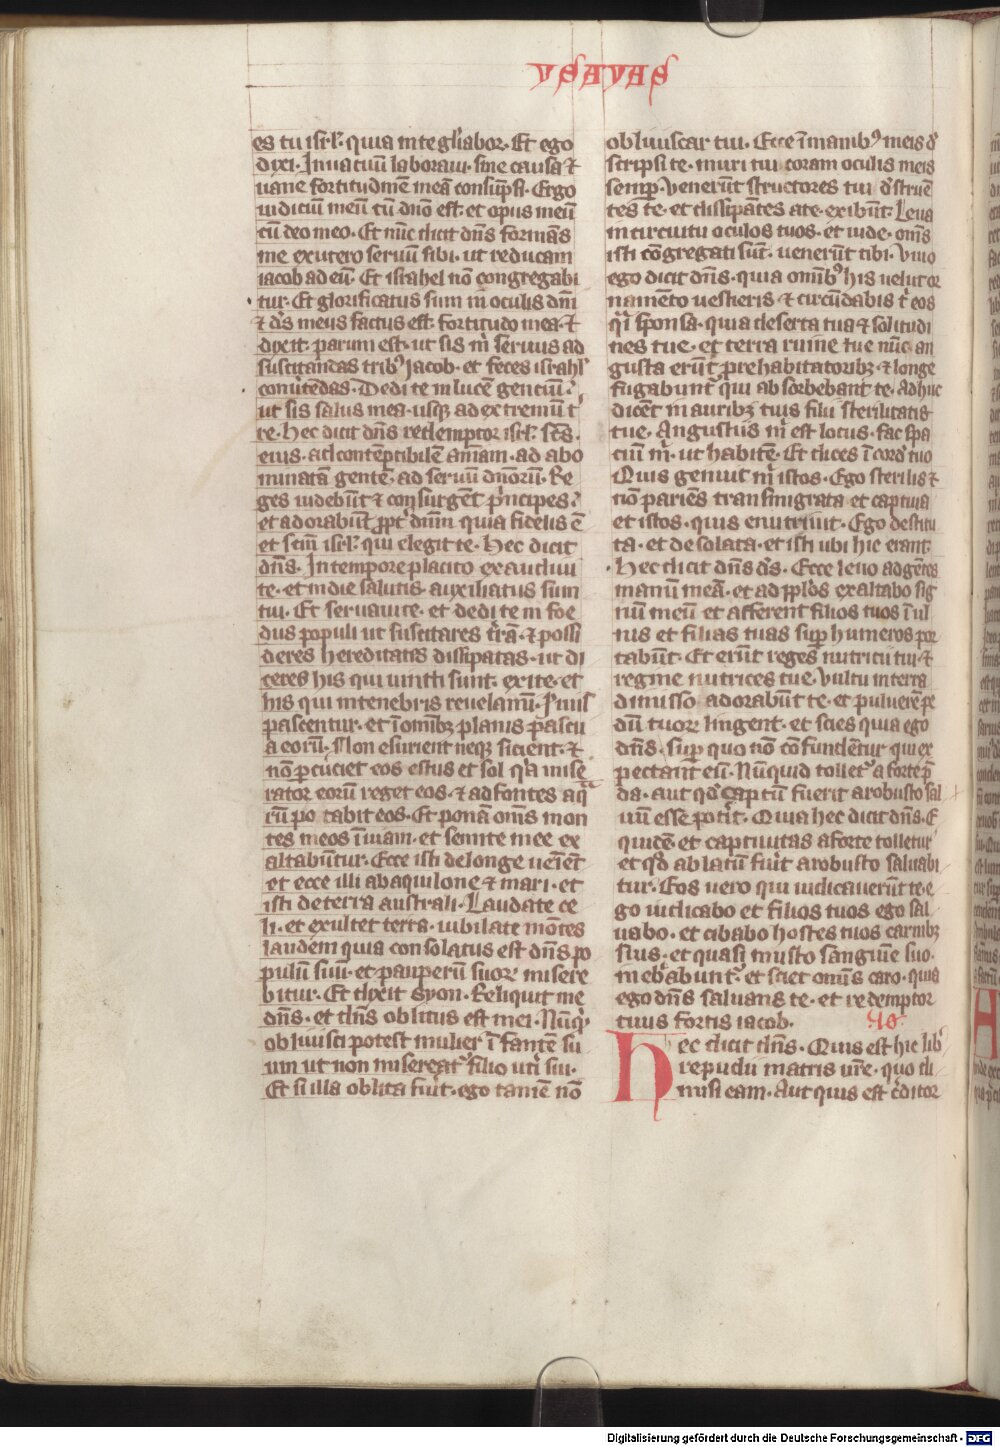 ysayas
es tu isrl̄· quia in te gl̄iabor· Et ego
dixi· In uacuū laboraui· sine causa ⁊
uane fortitudinē meā consūpsi· Ergo
iudiciū meū cū dn̄o est· et opus meū
cū deo meo· Et nūc dicit dn̄s formās
me ex utero seruū sibi· ut reducam
iacob ad eū· Et israhel nō congregabi
tur· Et glorificatus sum in oculis dn̄i
⁊ ds̄ meus factus est· fortitudo mea· ⁊
dixit· parum est· ut sis m̄ seruus ad
suscitandas tribꝰ Jacob· et feces israhl̄
conuertēdas· Dedi te in lucē genciū·
ut sis salus mea· usqꝫ ad extremū t̄
re· Hec dicit dn̄s redemptor isrl̄· sc̄s·
eius· ad contēptibilē animam· ad abo
minatā gentē· ad seruū dn̄orū· Re
ges uidebūt ⁊ consurgēt prīncipes·
et adorabūt ꝓpt̄ dn̄m quia fidelis ē
et sc̄m isrl̄· qui elegit te· Hec dicit
dn̄s· In tempore placito exaudiui
te· et in die salutis auxiliatus sum
tui· Et seruaui te· et dedi te in foe
dus populi ut suscitares t̄rā· ⁊ possi
deres hereditates dissipatas· ut di
ceres his qui uincti sunt· exite· et
his qui in tenebris reuelamī· S uiis
pascentur· et ī omībꝫ planis pascu
a eorū· Non esurient neqꝫ sicient· ⁊
nō ꝑcuciet eos estus et sol q̄a mise
rator eorū reget eos· ⁊ ad fontes aq̄
rū potabit eos· Et ponā om̄s mon
tes meos ī uiam· et semite mee ex
altabūtur· Ecce isti de longe ueniēt
et ecce illi ab aquilone ⁊ mari· et
isti de terra australi· Laudate ce
li· et exultet terra· iubilate mōtes
laudem quia consolatus est dn̄s po
pulū suū· et pauperū suoꝝ misere
bitur· Et dixit syon· Reliquit me
dn̄s· et dn̄s oblitus est mei· Nūqꝫ
obliuisci potest mulier īfantē su
um ut non misereat̄ filio ut̄i sui·
Et si illa oblita fūit· ego tamē nō
obliuiscar tui· Ecce ī manibꝰ meis d̄
scripsi te· muri tui coram oculis meis
semꝑ· Venerūt structores tui d̄struē
tes te· et dissipātes a te· exibūt· Leua
in circuitu oculos tuos· et uide· om̄s
isti cōngregati sūt· uenerūt tibi· Viuo
ego dicit dn̄s· quia omībꝰ his uelut or
namēto uestieris ⁊ circūdabis t̄ eos
q̄i sponsa· quia deserta tua ⁊ solitudi
nes tue· et terra ruine tue nūc an
gusta erūt pre habitatoribꝫ ⁊ longe
fugabunt̄ qui absorbebant te· adhuc
dicēt in auribꝫ tuis filii sterilitatis
tue· Angustus m̄ est locus· fac spa
ciū m̄· ut habitē· Et dices ī cord̄ tuo
Quis genuit m̄ istos· Ego sterilis ⁊
nō pariēs transmigrata et captiua
et istos· quis enutriuit· Ego destitu
ta· et desolata· et isti ubi hic erant·
Hec dicit dn̄s ds̄· Ecce leuo ad gētes
manū meā· et ad ppl̄os exaltabo sig
nū meū et afferent filios tuos ī ul
nis et filias tuas suꝑ humeros por
tabūt· Et erūt reges nutricii tui· ⁊
regine nutrices tue· Vultu in terra
dimisso adorabūt te· et puluerē pe
dū tuoꝝ lingent· et scies quia ego
dn̄s· suꝑ quo nō cōfundētur qui ex
pectant eū· Nūquid tollet̄ a forte p̄
da· aut qd̄ captū fuerit a robusto sal
uū esse pot̄it· Quia hec dicit dn̄s· E
quidē et captiuitas a forte tolletur
et qd̄ ablatū fūit a robusto saluabi
tur· Eos uero qui iudicauerūt te· e
go iudicabo et filios tuos ego sal
uabo· et cibabo hostes tuos carnibꝫ
suis· et quasi musto sanguīe suo·
inebr̄iabunt̄· et sciet omīs caro· quia
ego dn̄s saluans te· et redemptor
tuus fortis iacob·
Hec dicit dn̄s· Quis est hic lib̄
repudii matris ur̄e· quo di
misi eam· Aut quis est c̄ditor
Digitalisierung gefördert durch die Deutsche Forschungsgemeinschaft - DFG